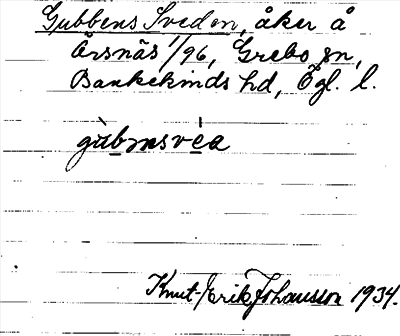 Gubbens Sveden, åker å
Örsnäs 1/96, Grebo sn,
Bankekinds hd, Ögl. l.
gùbmsvéa
Knut-Erik Johansson 1934.